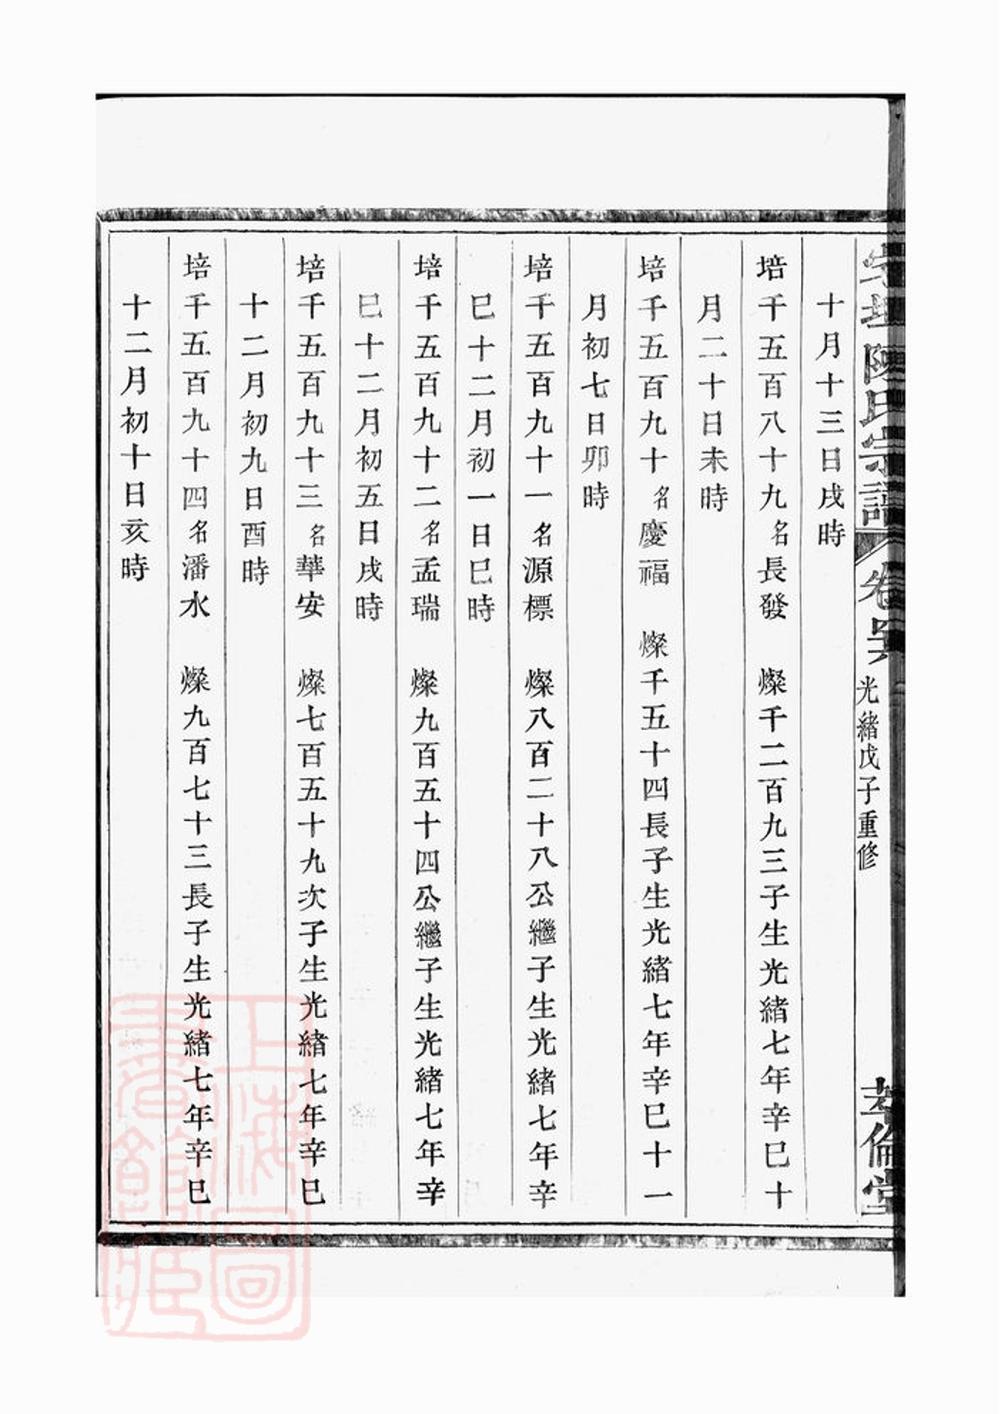 陳氏宗譜
卷
光緒戊子重修
倫堂
十月十三日戌時
培千五百八十九名長發 燦千二百九三子生光緒七年辛巳十
月二十日未時
培千五百九十名慶福 燦千五十四長子生光緒七年辛巳十一
月初七日卯時
培千五百九十一名源標 燦八百二十八公繼子生光緒七年辛
巳十二月初一日巳時
培千五百九十二名孟瑞 燦九百五十四公繼子生光緒七年辛
巳十二月初五日戌時
培千五百九十三名華安 燦七百五十九次子生光緒七年辛巳
十二月初九日酉時
培千五百九十四名潘水 燦九百七十三長子生光緒七年辛巳
十二月初十日亥時
上海圖書館藏